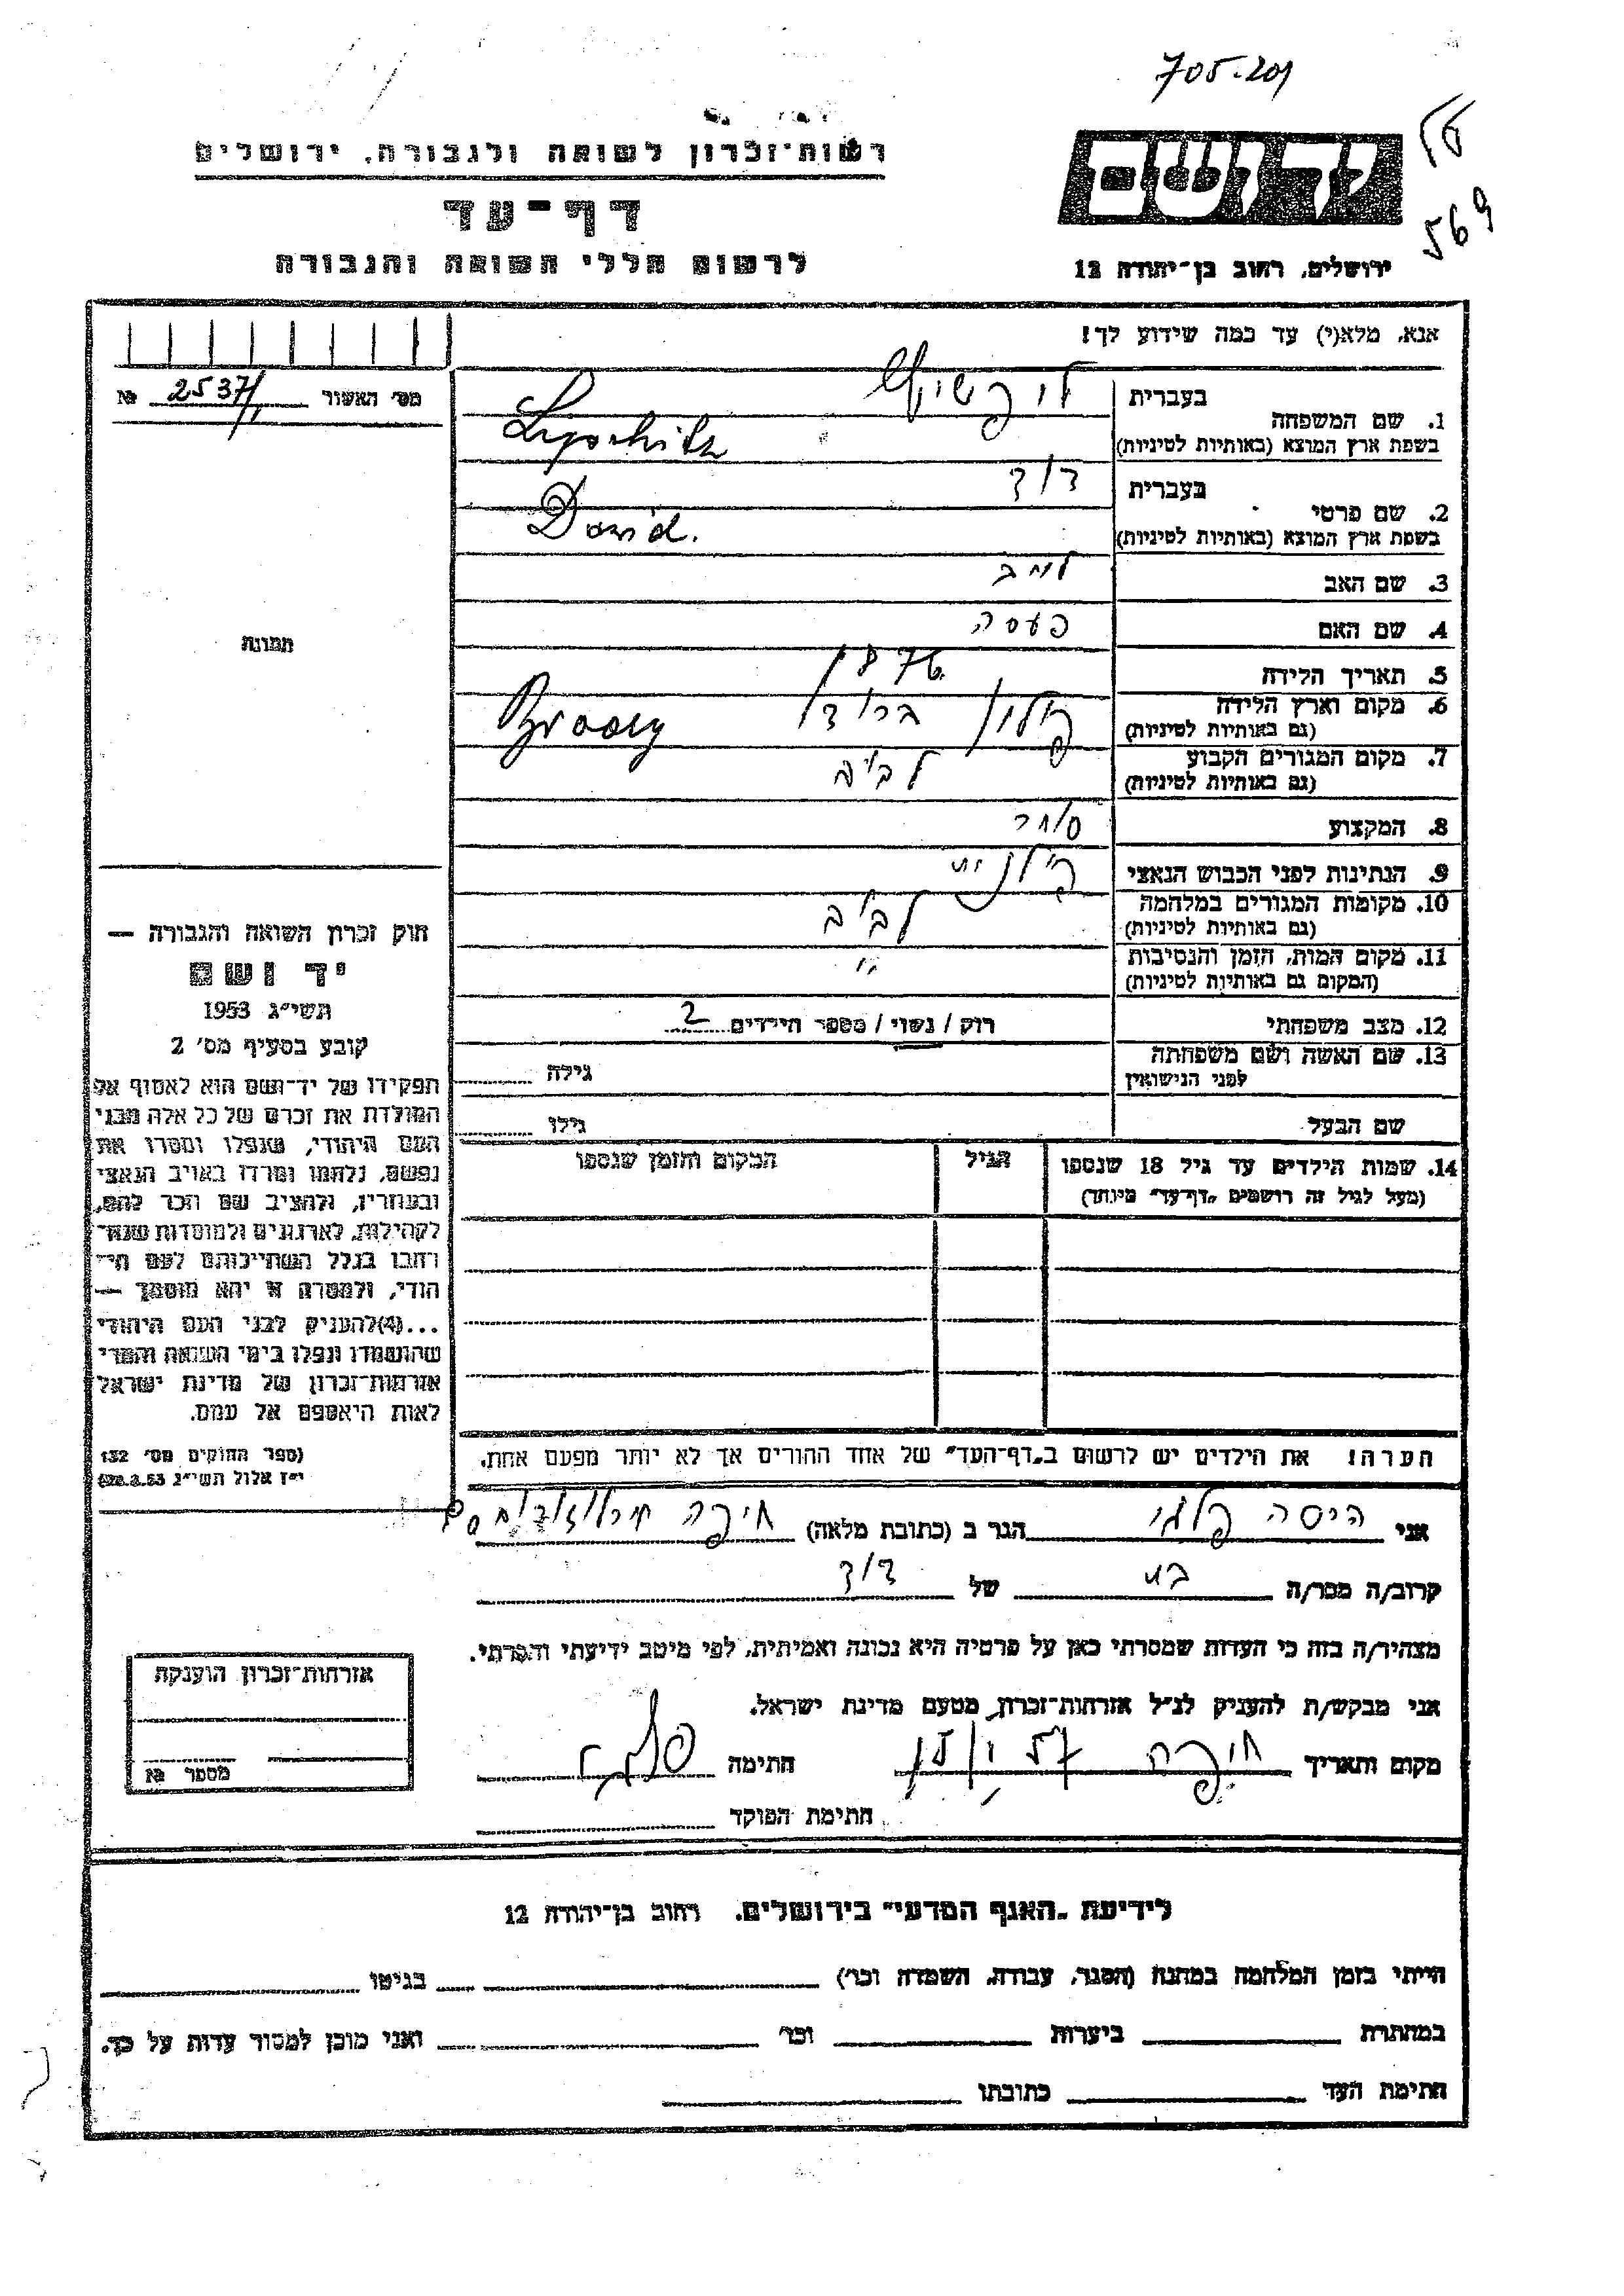 705.201
רשות־זכרון לשואה ולגבורה, ירושלים
יד ושם
569
דף־עד
לרשום חללי השואה והגבורה
ירושלים, רחוב בן־יהודה 12
אנא, מלא(י) עד כמה שידוע לך!
מס׳ האשור 2537/1 №
1. שם המשפחה
בעברית ליפשיץ
בשפת ארץ המוצא (באותיות לטיניות) Lipschitz
2. שם פרטי
בעברית דוד
בשפת ארץ המוצא (באותיות לטיניות) Dawid.
3. שם האב לייב
4. שם האם פעסה
5. תאריך הלידה 1876
6. מקום וארץ הלידה פולין ברודי Brody
(גם באותיות לטיניות)
7. מקום המגורים הקבוע לבוב
(גם באותיות לטיניות)
8. המקצוע סוחר
9. הנתינות לפני הכבוש הנאצי פולנית
10. מקומות המגורים במלחמה לבוב
(גם באותיות לטיניות)
11. מקום המות, הזמן והנסיבות "
(המקום גם באותיות לטיניות)
12. מצב משפחתי רוק / נשוי / מספר הילדים 2
13. שם האשה ושם משפחתה
לפני הנישואין
גילה
שם הבעל גילו
14. שמות הילדים עד גיל 18 שנספו
(מעל לגיל זה רושמים „דף־עד״ מיוחד)
הגיל
המקום והזמן שנספו
הערה: את הילדים יש לרשום ב„דף־העד״ של אחד ההורים אך לא יותר מפעם אחת.
תמונה
חוק זכרון השואה והגבורה —
יד ושם
תשי״ג 1953
קובע בסעיף מס׳ 2
תפקידו של יד־ושם הוא לאסוף אל
המולדת את זכרם של כל אלה מבני
העם היהודי, שנפלו ומסרו את
נפשם, נלחמו ומרדו באויב הנאצי
ובעוזריו, ולהציב שם וזכר להם,
לקהילות, לארגונים ולמוסדות שנח־
רבו בגלל השתייכותם לעם הי־
הודי, ולמטרה זו יהא מוסמך —
...(4)להעניק לבני העם היהודי
שהושמדו ונפלו בימי השואה והמרי
אזרחות־זכרון של מדינת ישראל
לאות היאספם אל עמם.
(ספר החוקים מס׳ 132
י״ז אלול תשי״ג 28.8.53)
אני הגר ב (כתובת מלאה) חיפה
קרוב/ה מכר/ה בת של דוד
מצהיר/ה בזה כי העדות שמסרתי כאן על פרטיה היא נכונה ואמיתית, לפי מיטב ידיעתי והכרתי.
אני מבקש/ת להעניק לנ״ל אזרחות־זכרון מטעם מדינת ישראל.
מקום ותאריך חיפה חתימה
חתימת הפוקד
אזרחות־זכרון הוענקה
מספר №
לידיעת „האגף המדעי״ בירושלים, רחוב בן־יהודה 12
הייתי בזמן המלחמה במחנה (הסגר, עבודה, השמדה וכו׳) בגיטו
במחתרת ביערות וכו׳ ואני מוכן למסור עדות על כך.
חתימת העד כתובתו